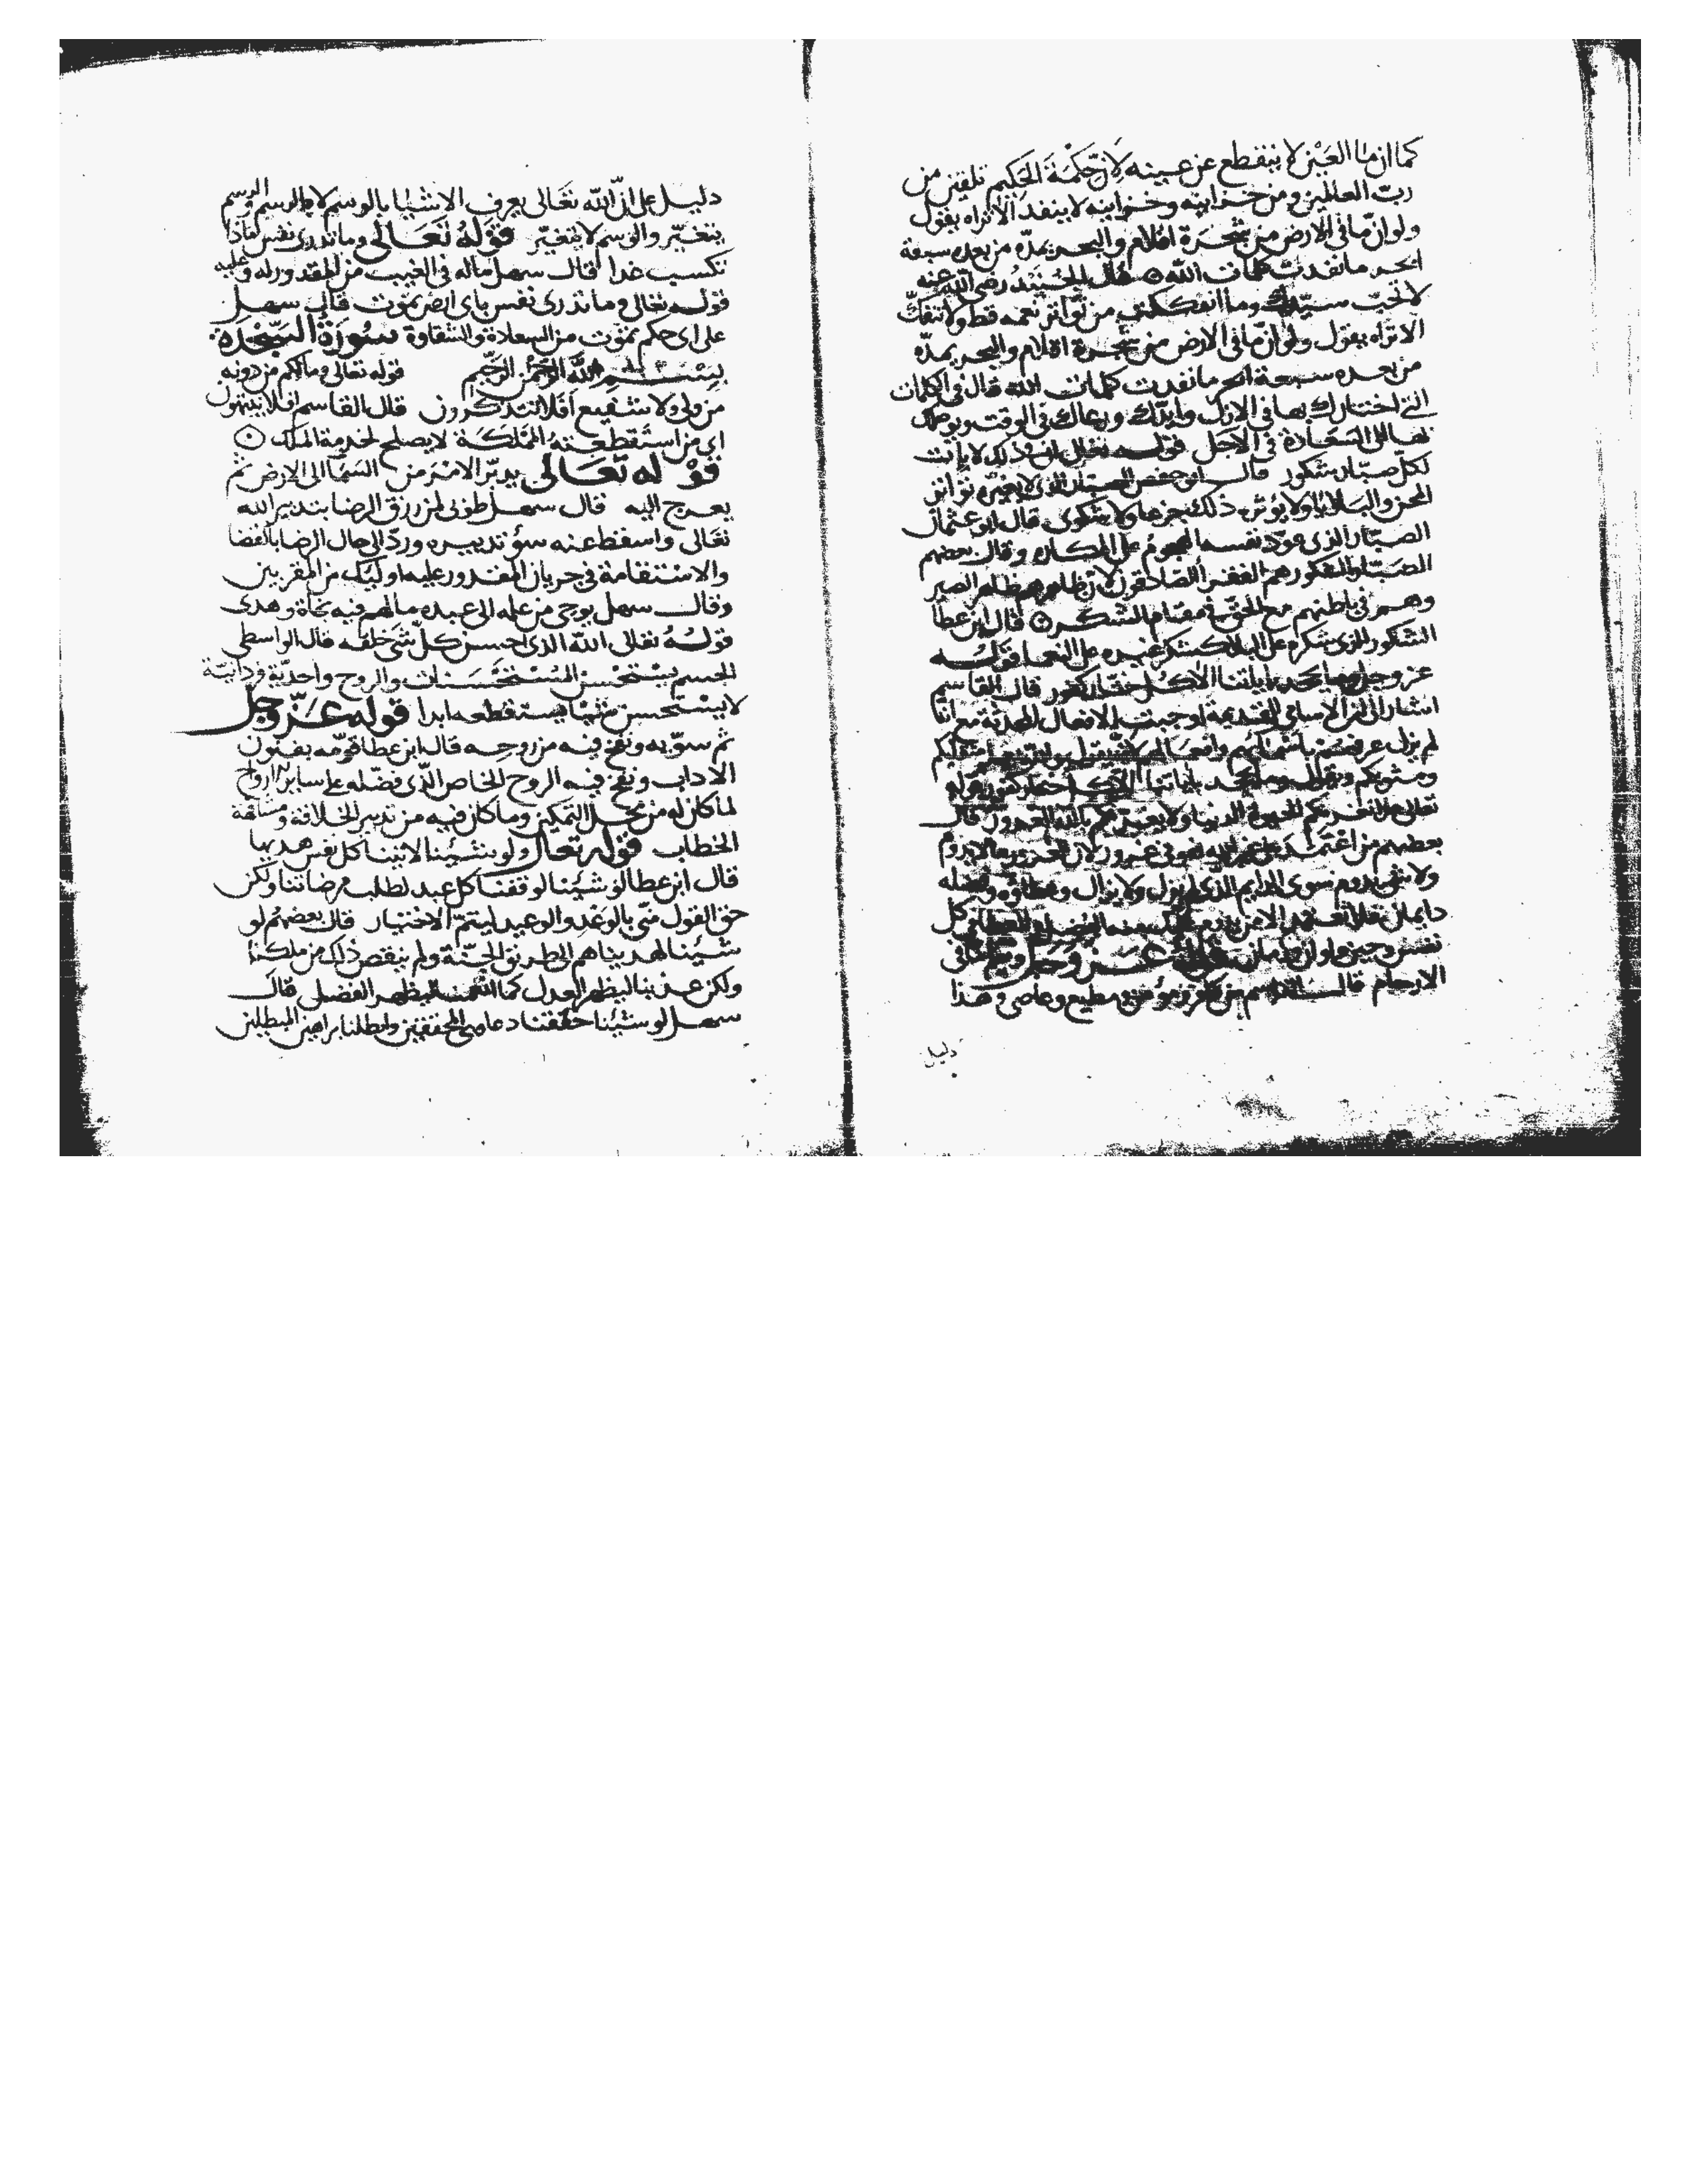 كما ان ما العين لا ينقطع عن عينه لان حكمة الحكيم تلقين من
رب العالمين ومن خزاينه وخزاينه لا ينفد الا تراه يقول
ولو ان ما في الارض من شجرة اقلام والبحر يمده من بعده سبعة
ابحر ما نفدت كلمات الله قال الجنيد رضي الله عنه
لا تحب سيدك وما انفككت من تواتر نعمه قط ولا تنفك
الا تراه يقول ولو ان ما في الارض من شجرة اقلام والبحر يمده
من بعده سبعة ابحر ما نفدت كلمات الله قال في الكلمات
التي اختارك بها في الازل وايدك ورعاك في الوقت
السعادة في الاجل قوله تعالى ان في ذلك لايات
لكل صبار شكور قال ابو حفص الصبار الذي لا يغيره تواتر
المحن والبلايا ولا يؤثر ذلك جزعا ولا شكوى قال ابو عثمان
الصبار الذي عود نفسه الهجوم على المكاره وقال بعضهم
الصبار والشكور هم الفقرا الصادقون لان ظاهرهم ظاهر الصبر
وهم في باطنهم مع الحق في مقام الشكر قال ابن عطا
الشكور الذي شكره على البلا كشكر غيره على النعما قوله
عز وجل وما يجحد باياتنا الا كل ختار كفور قال القاسم
اشار الى ان الاسامي القديمة اوجبت الافعال المحدثة
لم يزل عرفهم باسمائهم وافعالهم متقلبكم
ومثويكم وما يجحد باياتنا الا كل ختار كفور قوله
تعالى فلا تغرنكم الحيوة الدنيا ولا يغرنكم بالله الغرور قال
بعضهم من اعتمد على غير الله فهو في غرور لان الغرور ما لا يدوم
ولا شي يدوم سوى الدايم الذي لم يزل ولا يزال وعطاؤه وفضله
دايمان فلا تعتمد الا من يدوم عليك منه الفضل والعطا في كل
نفس وحين واوان وزمان قوله عز وجل ويعلم ما في
الارحام قال القاسم من كافر ومؤمن ومطيع وعاصي وهذا
دليل
دليل على ان الله تعالى يعرف الاشيا بالوسم لا بالرسم والرسم
يتغير والوسم لا يتغير قوله تعالى وما تدري نفس ماذا
تكسب غدا قال سهل ماله في الغيب من المقدور له وعليه
قوله تعالى وما تدري نفس باي ارض تموت قال سهل
على اي حكم تموت من السعادة والشقاوة سورة السجدة
بسم الله الرحمن الرحيم قوله تعالى وما لكم من دونه
من ولي ولا شفيع افلا تتذكرون قال القاسم افلا ينتهون
اي من استقطعته المملكة لا يصلح لخدمة الملك
قوله تعالى يدبر الامر من السما الى الارض ثم
يعرج اليه قال سهل طوبى لمن رزق الرضا بتدبير الله
تعالى واسقط عنه سؤ تدبيره ورد الى حال الرضا بالقضا
والاستقامة في جريان المقدور عليه اوليك من المقربين
وقال سهل يوحي من علمه الى عبده ما لهم فيه نجاة وهدى
قوله تعالى الله الذي احسن كل شي خلقه قال الواسطي
الجسم يستحسن المستحسنات والروح واحدية فردانية
لا يستحسن شيا قطعه ابدا قوله عز وجل
ثم سويه ونفخ فيه من روحه قال ابن عطا قومه بفنون
الاداب ونفخ فيه الروح الخاص الذي فضله على ساير الارواح
لما كان له من محل التمكين وما كان فيه من تدبير الخلافة ومشافهة
الخطاب قوله تعالى ولو شئنا لاتينا كل نفس هديها
قال ابن عطا لو شئنا لوفقنا كل عبد لطلب مرضاتنا ولكن
حق القول مني بالوعد والوعيد ليتم الاختيار قال بعضهم لو
شئنا لهديناهم الى طريق الجنة ولم ينقص ذلك من ملكنا
ولكن عذبنا ليظهر العدل كما انعمنا ليظهر الفضل قال
سهل لو شئنا حققنا دعاوي المحققين وابطلنا براهين المبطلين